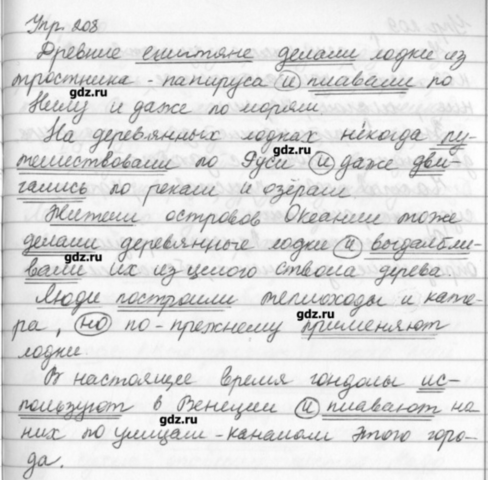 Упр. 208
Древние египтяне делали лодки из
тростника - папируса и плавали по
gdz.ru gdz.ru
Нилу и даже по морям.
На деревянных лодках некогда пу-
тешествовали по Руси и даже дви-
gdz.ru
гались по рекам и озёрам.
Жители островов Океании тоже
делали деревянные лодки и выдалбли-
вали их из целого ствола дерева.
Люди построили теплоходы и кате-
gdz.ru
ра, но по-прежнему применяют
лодки.
В настоящее время гондолы ис-
пользуют в Венеции и плавают на
gdz.ru gdz.ru
них по улицам - каналам этого горо-
да.